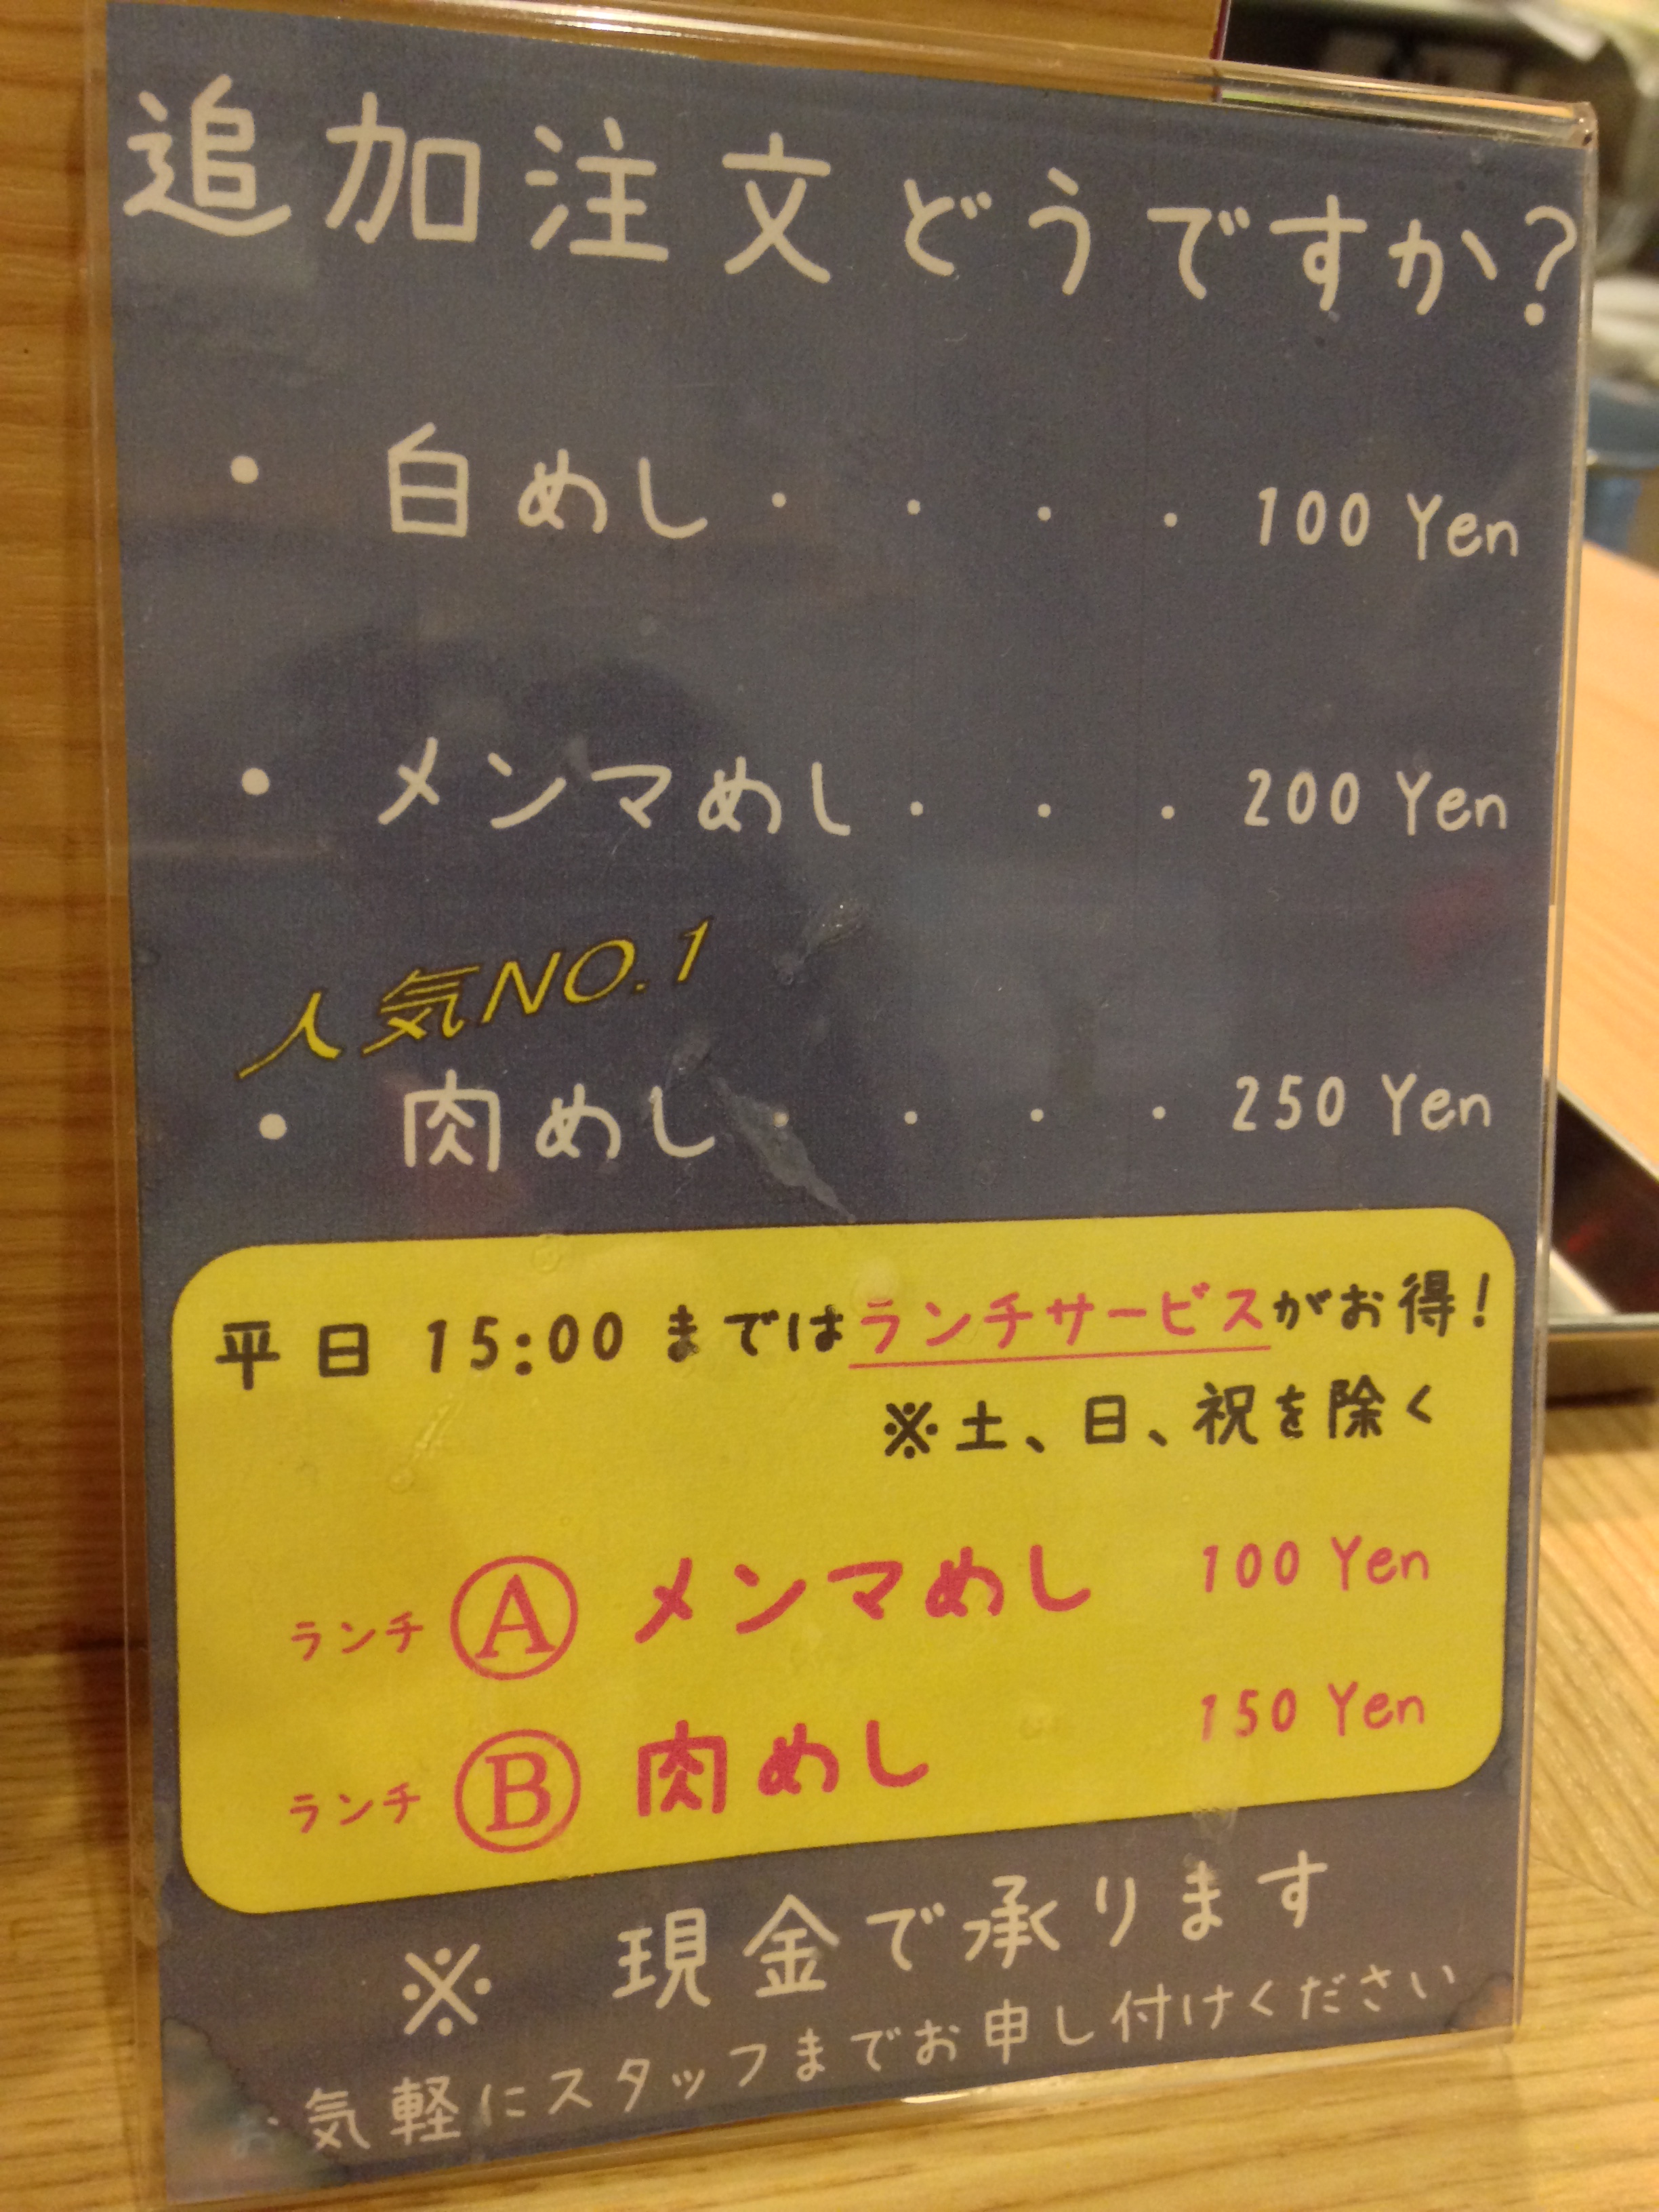 追加注文どうですか？
・ 白めし・・・・100 Yen
・ メンマめし・・・200 Yen
人気NO.1
・ 肉めし・・・・250 Yen
平日 15:00 まではランチサービスがお得！
※土、日、祝を除く
ランチ Ⓐ メンマめし 100 Yen
ランチ Ⓑ 肉めし 150 Yen
※ 現金で承ります
お気軽にスタッフまでお申し付けください